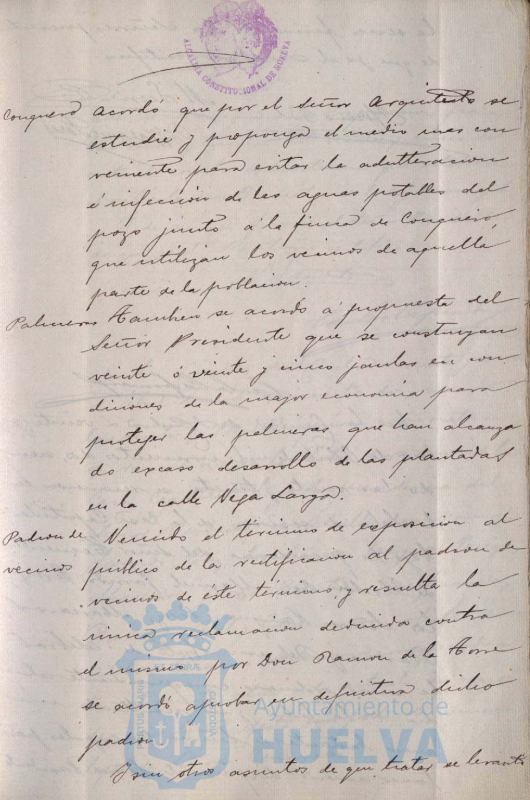 ALCALDIA CONSTITUCIONAL DE HUELVA
Conquero acordó que por el Señor Arquitecto se
estudie y proponga el medio mas con
veniente para evitar la adulteracion
é infección de las aguas potables del
pozo junto á la finca de Conquero,
que utilizan los vecinos de aquella
parte de la poblacion.
Palmeras Tambien se acordó á propuesta del
Señor Presidente que se construyan
veinte ó veinte y cinco jaulas en con
diciones de la major economía para
proteger las palmeras que han alcanza
do excaso desarrollo de las plantadas
en la calle Vega Larga.
Padron de Vencido el término de exposicion al
vecinos público de la rectificacion al padron de
vecinos de éste término, y resulta la
única reclamacion deducida contra
el mismo por Don Ramon de la Torre
se acordó aprobar en definitiva dicho
padron.
Y sin otros asuntos de que tratar se levantó
Ayuntamiento de
HUELVA